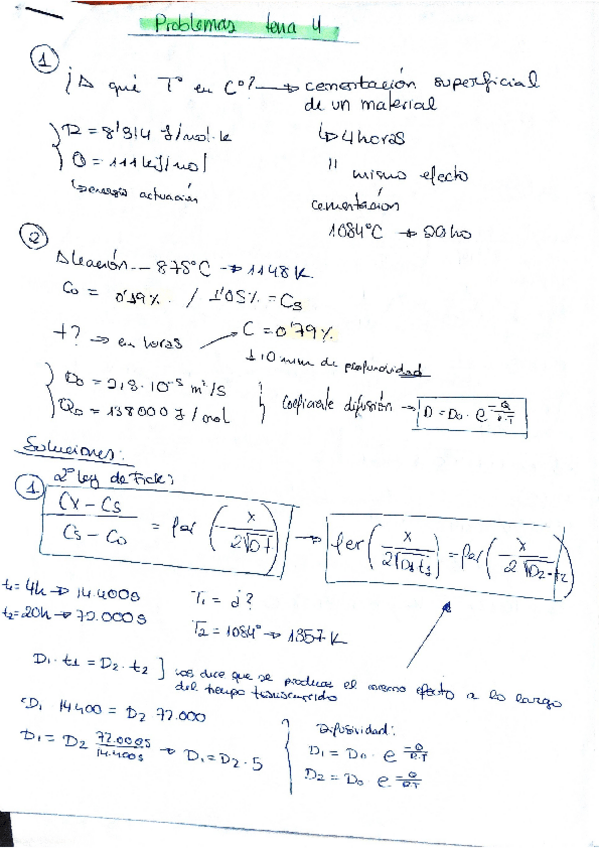 Problemas tema 4
1
¿A qué Tº en Cº? → cementación superficial
de un material
R = 8'314 J/mol·k
↳ 4 horas
Q = 111 kJ/mol
" mismo efecto
↳ energia actuación
cementación
1084°C → 20 ho
2
Aleación -- 875°C → 1148 K
C₀ = 0'19% / 1'05% = Cs
t? → en horas
C = 0'79%
1'0 mm de profundidad
D₀ = 2,8·10⁻⁵ m²/s
Q₀ = 138000 J/mol
Coeficiente difusión → D = D₀ · e^(-Q/R·T)
Soluciones:
1
2º Ley de Fick:
(Cx - Cs)/(Cs - C₀) = fer(-x/(2√Dt)) → fer(x/(2√D₁t₁)) = fer(x/(2√D₂·t₂))
t₁ = 4h → 14.400s
T₁ = ¿?
t₂ = 20h → 72.000s
T₂ = 1084° → 1357 K
D₁·t₁ = D₂·t₂ ] nos dice que se produce el mismo efecto a lo largo
del tiempo transcurrido
D₁ 14400 = D₂ 72.000
D₁ = D₂ 72.000s/14.400s → D₁ = D₂·5
Difusividad:
D₁ = D₀ · e^(-Q/R·T)
D₂ = D₀ · e^(-Q/R·T)